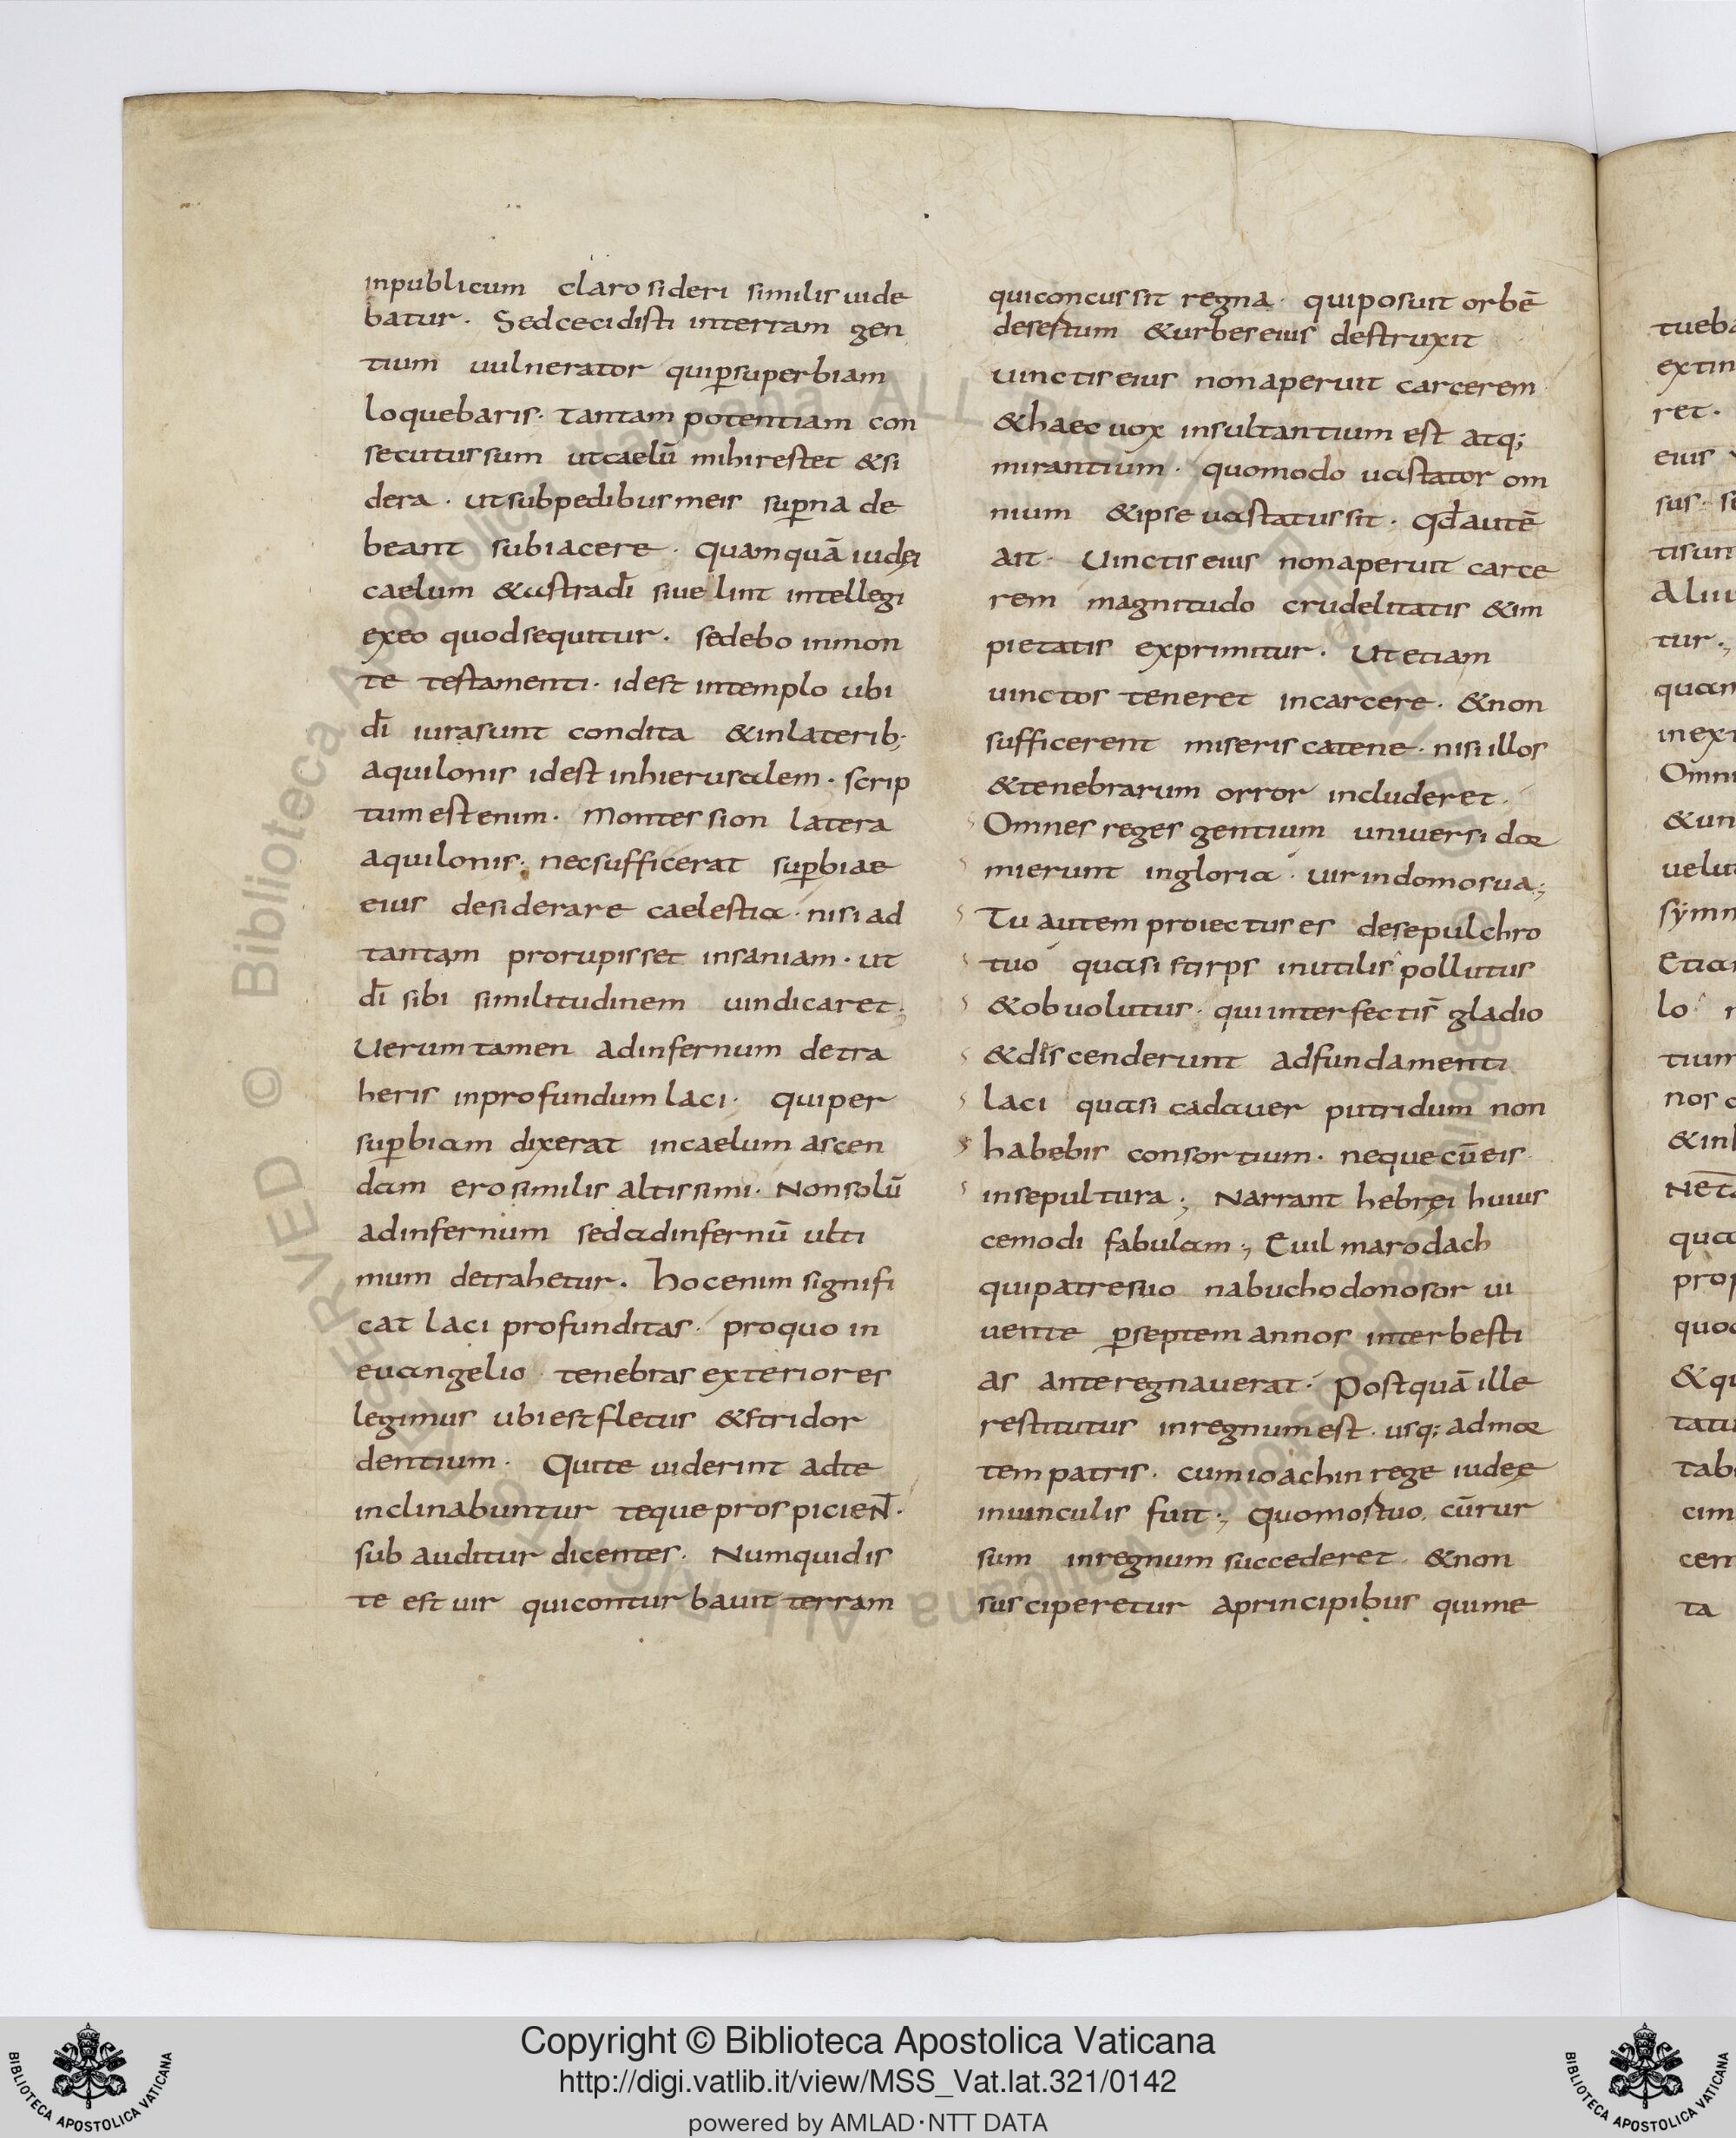 inpublicum claro sideri similis uide
batur. Sed cecidisti interram gen
tium uulnerator qui ꝑsuperbiam
loquebaris. tantam potentiam con
secutus sum ut caelū mihi restet & si
dera. ut sub pedibus meis suꝑna de
beant subiacere. quamquā iudęi
caelum & astra dī siue lint intellegi
ex eo quod sequitur. sedebo in mon
te testamenti. id est in templo ubi
dī iura sunt condita & in laterib;
aquilonis id est in hierusalem. scrip
tum est enim. Montes sion latera
aquilonis. nec sufficerat suꝑbiae
eius desiderare caelestia. nisi ad
tantam prorupisset insaniam. ut
dī sibi similitudinem uindicaret;
Uerum tamen ad infernum detra
heris in profundum laci. qui per
suꝑbiam dixerat in caelum ascen
dam ero similis altissimi. Non solū
ad infernum sed ad infernū ulti
mum detrahetur. hoc enim signifi
cat laci profunditas. pro quo in
euangelio tenebras exteriores
legimus ubi est fletus & stridor
dentium. Qui te uiderint ad te
inclinabuntur teque prospicieN̄.
sub auditur dicentes. Numquid is
te est uir qui conturbauit terram
qui concussit regna. qui posuit orbē
desertum & urbes eius destruxit
uinctis eius non aperuit carcerem
& haec uox insultantium est atq;
mirantium. quomodo uastator om
nium & ipse uastatus sit. Qd̄ autē
ait. Uinctis eius non aperuit carce
rem magnitudo crudelitatis & im
pietatis exprimitur. Ut etiam
uinctos teneret in carcere. & non
sufficerent miseris catene. nisi illos
& tenebrarum orror includeret.
Omnes reges gentium uniuersi dor
mierunt in gloria. uir in domo sua;
Tu autem proiectus es de sepulchro
tuo quasi stirps inutilis pollutus
& obuolutus. qui interfectis̄ gladio
& discenderunt ad fundamenti
laci quasi cadauer putridum non
habebis consortium. neque cū eis
in sepultura; Narrant hebręi huius
cemodi fabulam; Euil marodach
qui patre suo nabuchodonosor ui
uente ꝑ septem annos inter besti
as ante regnauerat. Postquā ille
restitutus in regnum est. usq; ad mor
tem patris. cum ioachin rege iudeę
in uinculis fuit; Quo mortuo. cū rur
sum in regnum succederet. & non
susciperetur a principibus qui me
Copyright © Biblioteca Apostolica Vaticana
http://digi.vatlib.it/view/MSS_Vat.lat.321/0142
powered by AMLAD·NTT DATA
BIBLIOTECA APOSTOLICA VATICANA
BIBLIOTECA APOSTOLICA VATICANA